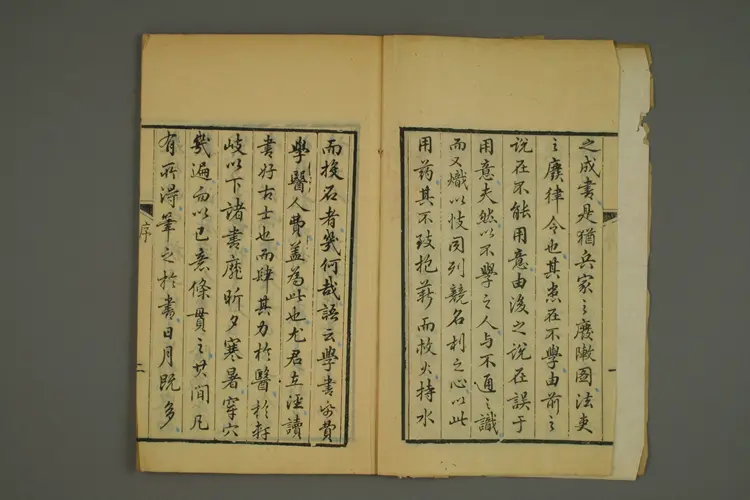 之成書是猶兵家之廢陳圖法吏
之廢律令也其患在不學由前之
說在不能用意由後之說在誤于
用意夫然以不學之人與不通之識
而又熾以忮同列競名利之心以此
用药其不致抱薪而救火持水
而投石者幾何哉語云學書帋費
學醫人費蓋為此也尤君在涇讀
書好古士也而肆其力於醫於軒
岐以下諸書靡昕夕寒暑穿穴
幾遍而以已意條貫之其間凡
有所得筆之於書日月既多
序
二